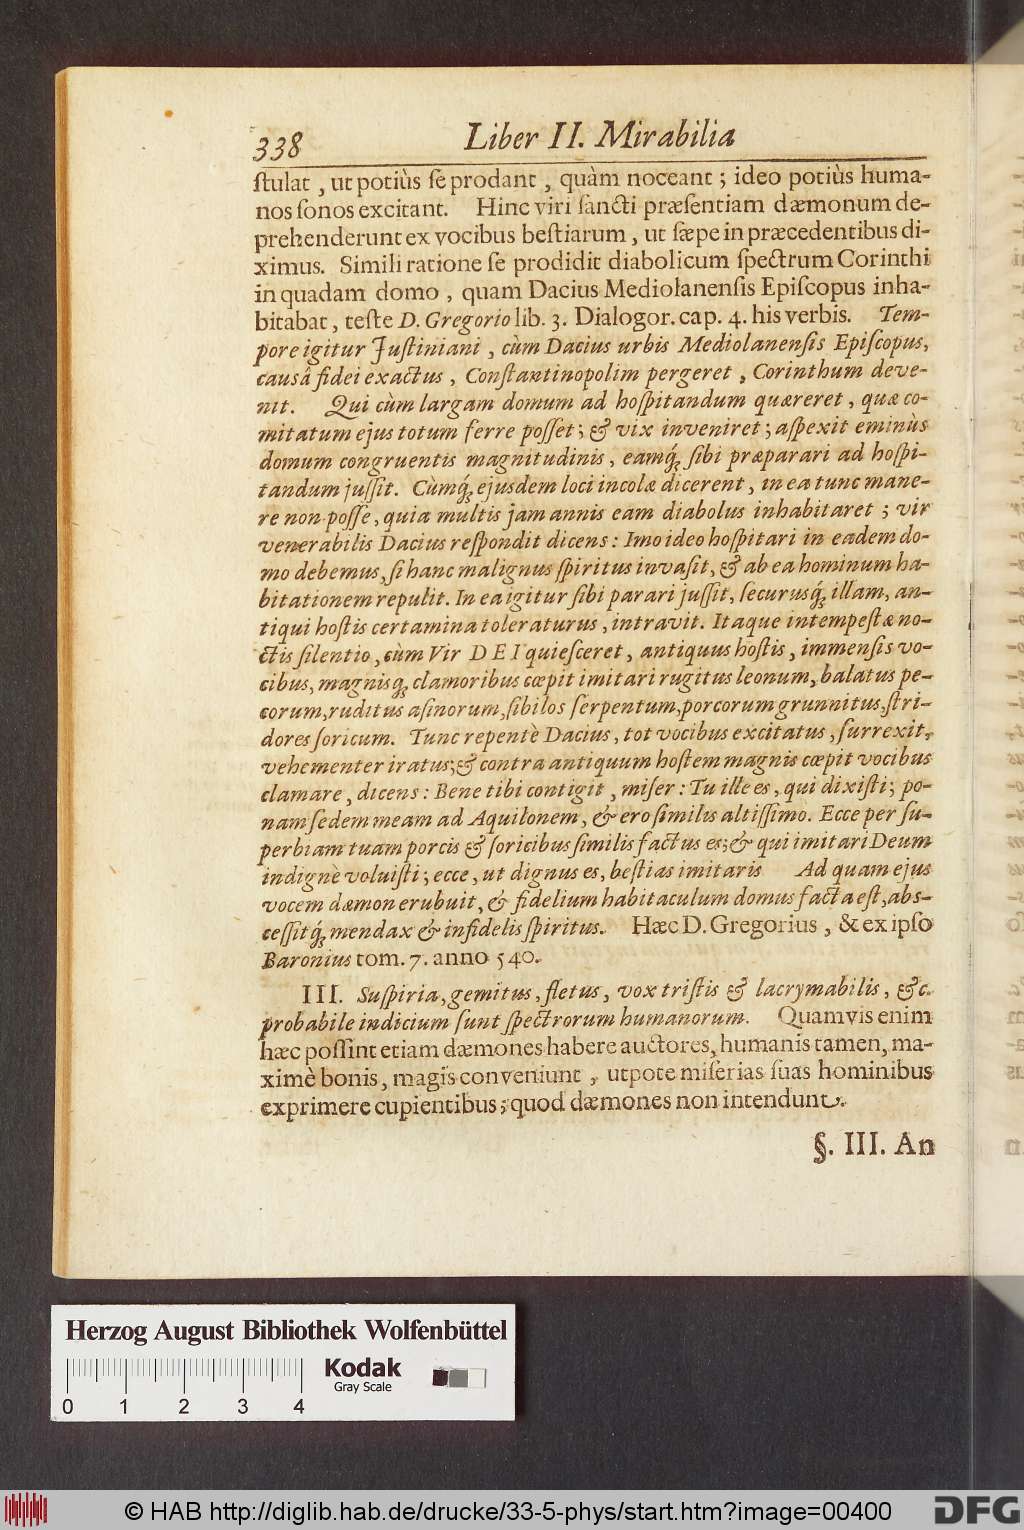 338 Liber II. Mirabilia
ſtulat, ut potiùs ſe prodant, quàm noceant; ideo potiùs huma-
nos ſonos excitant. Hinc viri ſancti præſentiam dæmonum de-
prehenderunt ex vocibus beſtiarum, ut ſæpe in præcedentibus di-
ximus. Simili ratione ſe prodidit diabolicum ſpectrum Corinthi
in quadam domo, quam Dacius Mediolanenſis Epiſcopus inha-
bitabat, teſte D. Gregorio lib. 3. Dialogor. cap. 4. his verbis. Tem-
pore igitur Juſtiniani, cùm Dacius urbis Mediolanenſis Epiſcopus,
causâ fidei exactus, Conſtantinopolim pergeret, Corinthum deve-
nit. Qui cùm largam domum ad hoſpitandum quæreret, quæ co-
mitatum ejus totum ferre poſſet; & vix inveniret; aſpexit eminùs
domum congruentis magnitudinis, eamq́; ſibi præparari ad hoſpi-
tandum juſſit. Cumq́; ejusdem loci incolæ dicerent, in ea tunc mane-
re non poſſe, quia multis jam annis eam diabolus inhabitaret; vir
venerabilis Dacius reſpondit dicens: Imo ideo hoſpitari in eadem do-
mo debemus, ſi hanc malignus ſpiritus invaſit, & ab ea hominum ha-
bitationem repulit. In ea igitur ſibi parari juſſit, ſecurusq́; illam, an-
tiqui hoſtis certamina toleraturus, intravit. Itaque intempeſtæ no-
ctis ſilentio, cùm Vir DEI quieſceret, antiquus hoſtis, immenſis vo-
cibus, magnisq; clamoribus cœpit imitari rugitus leonum, balatus pe-
corum, ruditus aſinorum, ſibilos ſerpentum, porcorum grunnitus, ſtri-
dores ſoricum. Tunc repentè Dacius, tot vocibus excitatus, ſurrexit,
vehementer iratus; & contra antiquum hoſtem magnis cœpit vocibus
clamare, dicens: Bene tibi contigit, miſer: Tu ille es, qui dixiſti; po-
nam ſedem meam ad Aquilonem, & ero ſimilis altiſſimo. Ecce per ſu-
perbiam tuam porcis & ſoricibus ſimilis factus es; & qui imitari Deum
indignè voluiſti; ecce, ut dignus es, beſtias imitaris Ad quam ejus
vocem dæmon erubuit, & fidelium habitaculum domus facta eſt, abs-
ceſſitq́; mendax & infidelis ſpiritus. Hæc D. Gregorius, & ex ipſo
Baronius tom. 7. anno 540.
III. Suſpiria, gemitus, fletus, vox triſtis & lacrymabilis, &c.
probabile indicium ſunt ſpectrorum humanorum. Quamvis enim
hæc poſſint etiam dæmones habere auctores, humanis tamen, ma-
ximè bonis, magis conveniunt, utpote miſerias ſuas hominibus
exprimere cupientibus; quod dæmones non intendunt.
§. III. An
Herzog August Bibliothek Wolfenbüttel
Kodak
Gray Scale
0 1 2 3 4
© HAB http://diglib.hab.de/drucke/33-5-phys/start.htm?image=00400
DFG